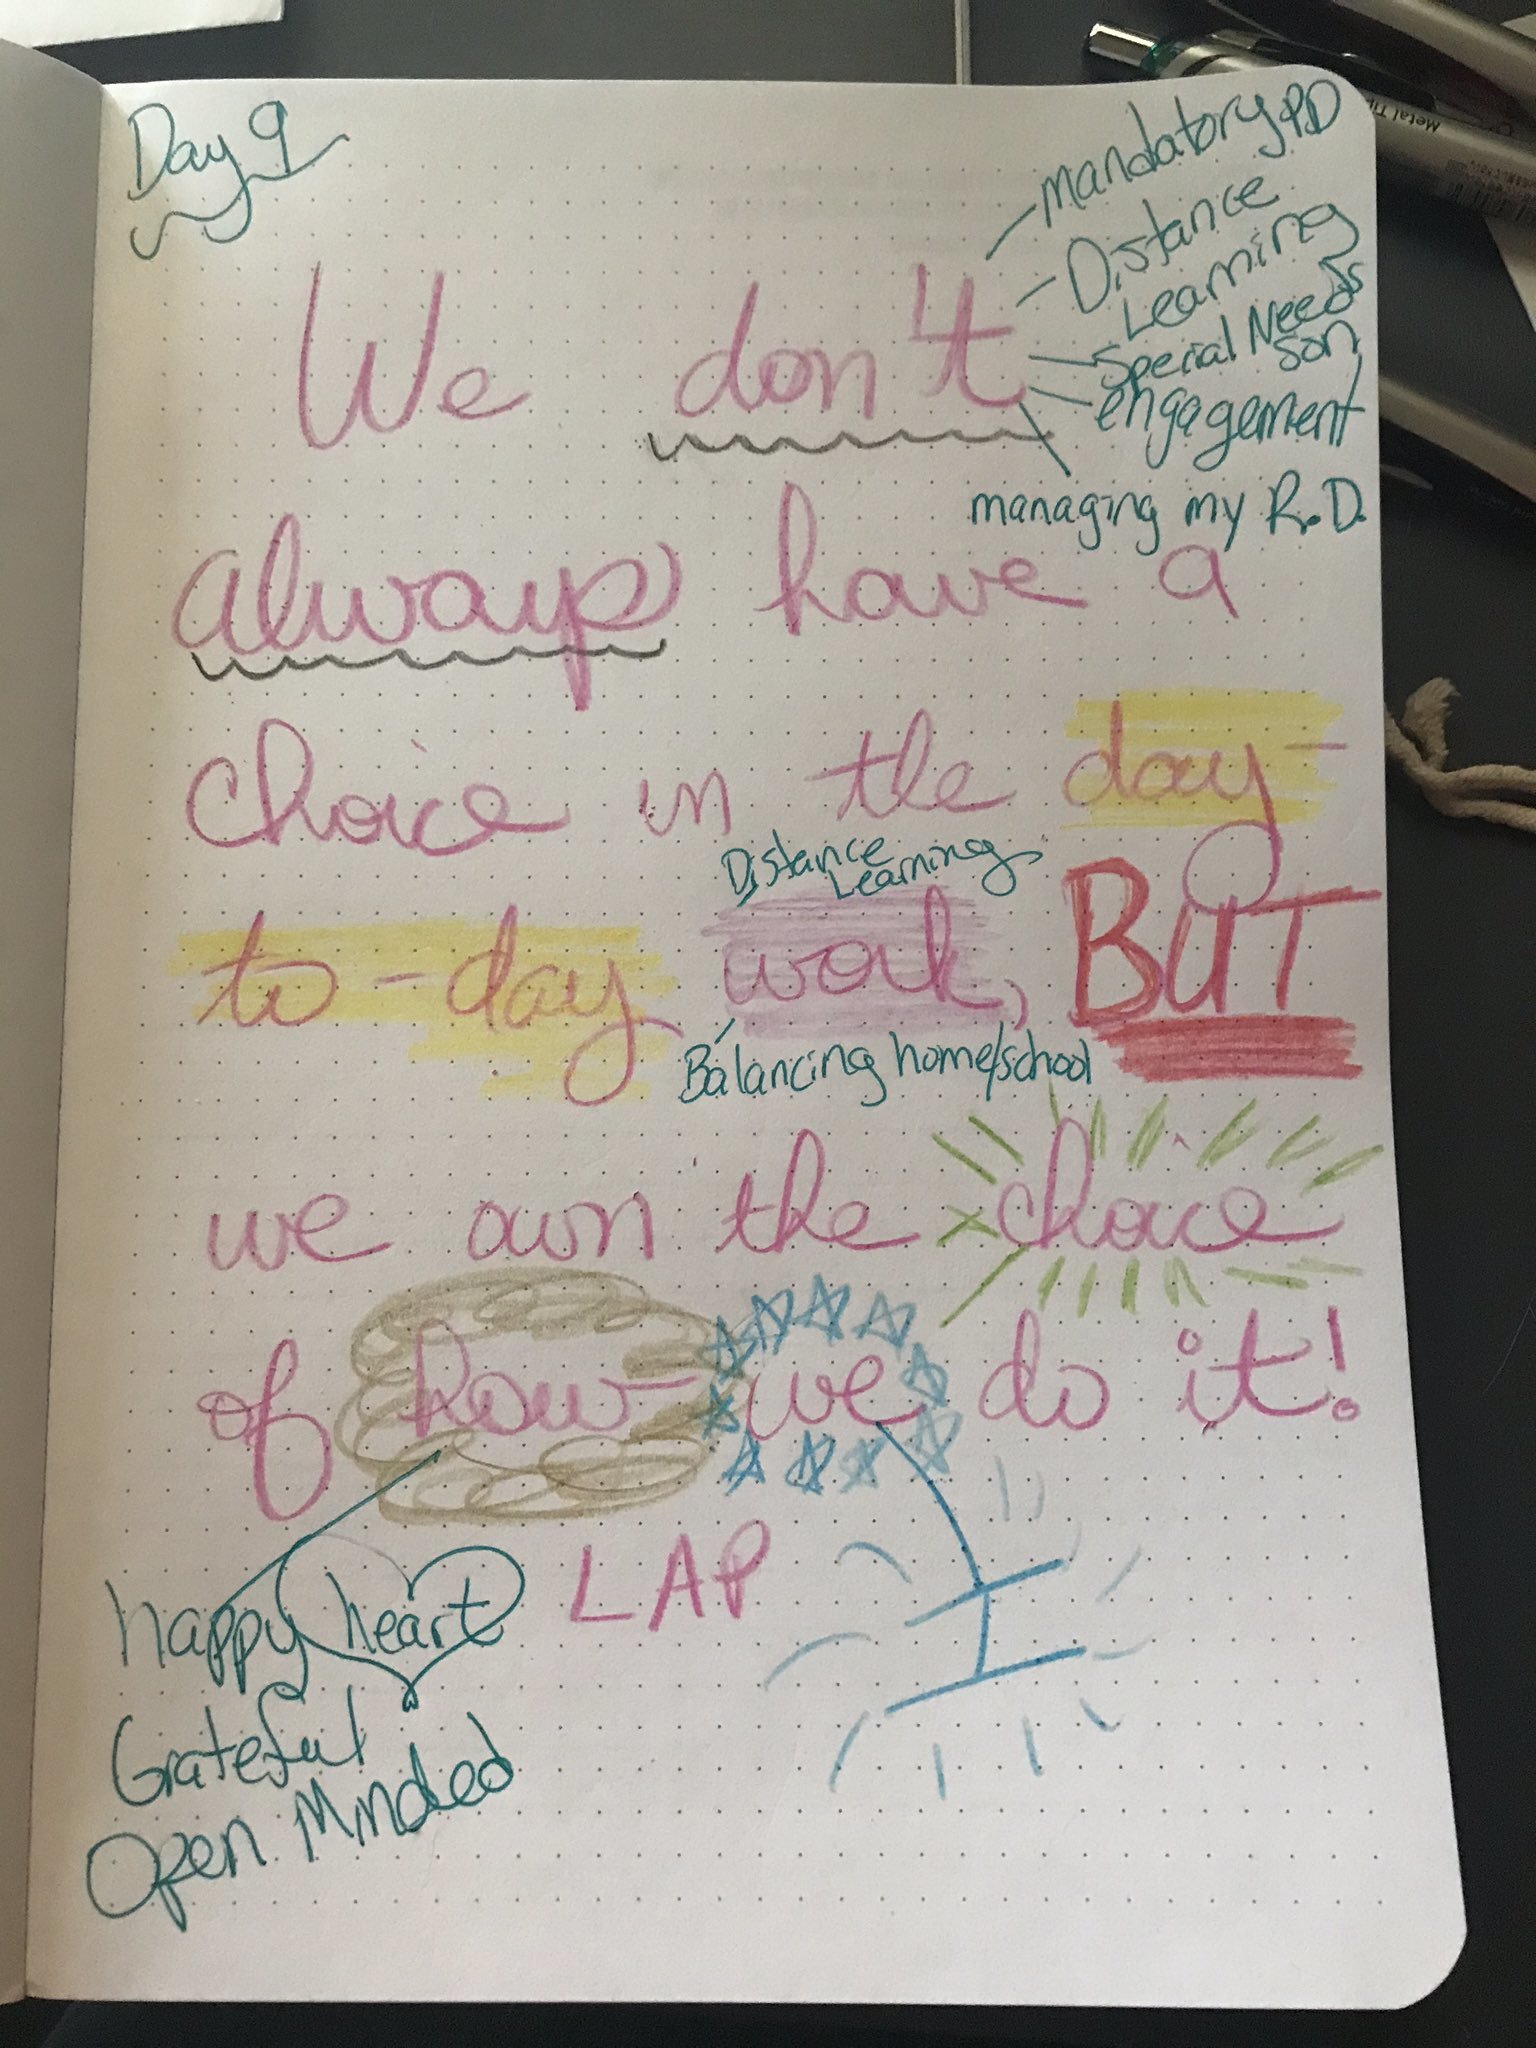 Day 9
mandatory PD
Distance
Learning
Special Needs
son
engagement
managing my R.D.
We don't
always have a
choice in the day-
Distance
Learning
to-day work, BUT
Balancing home/school
we own the choice
of how we do it!
LAP
I
happy heart
Grateful
Open Minded
Metal Tip